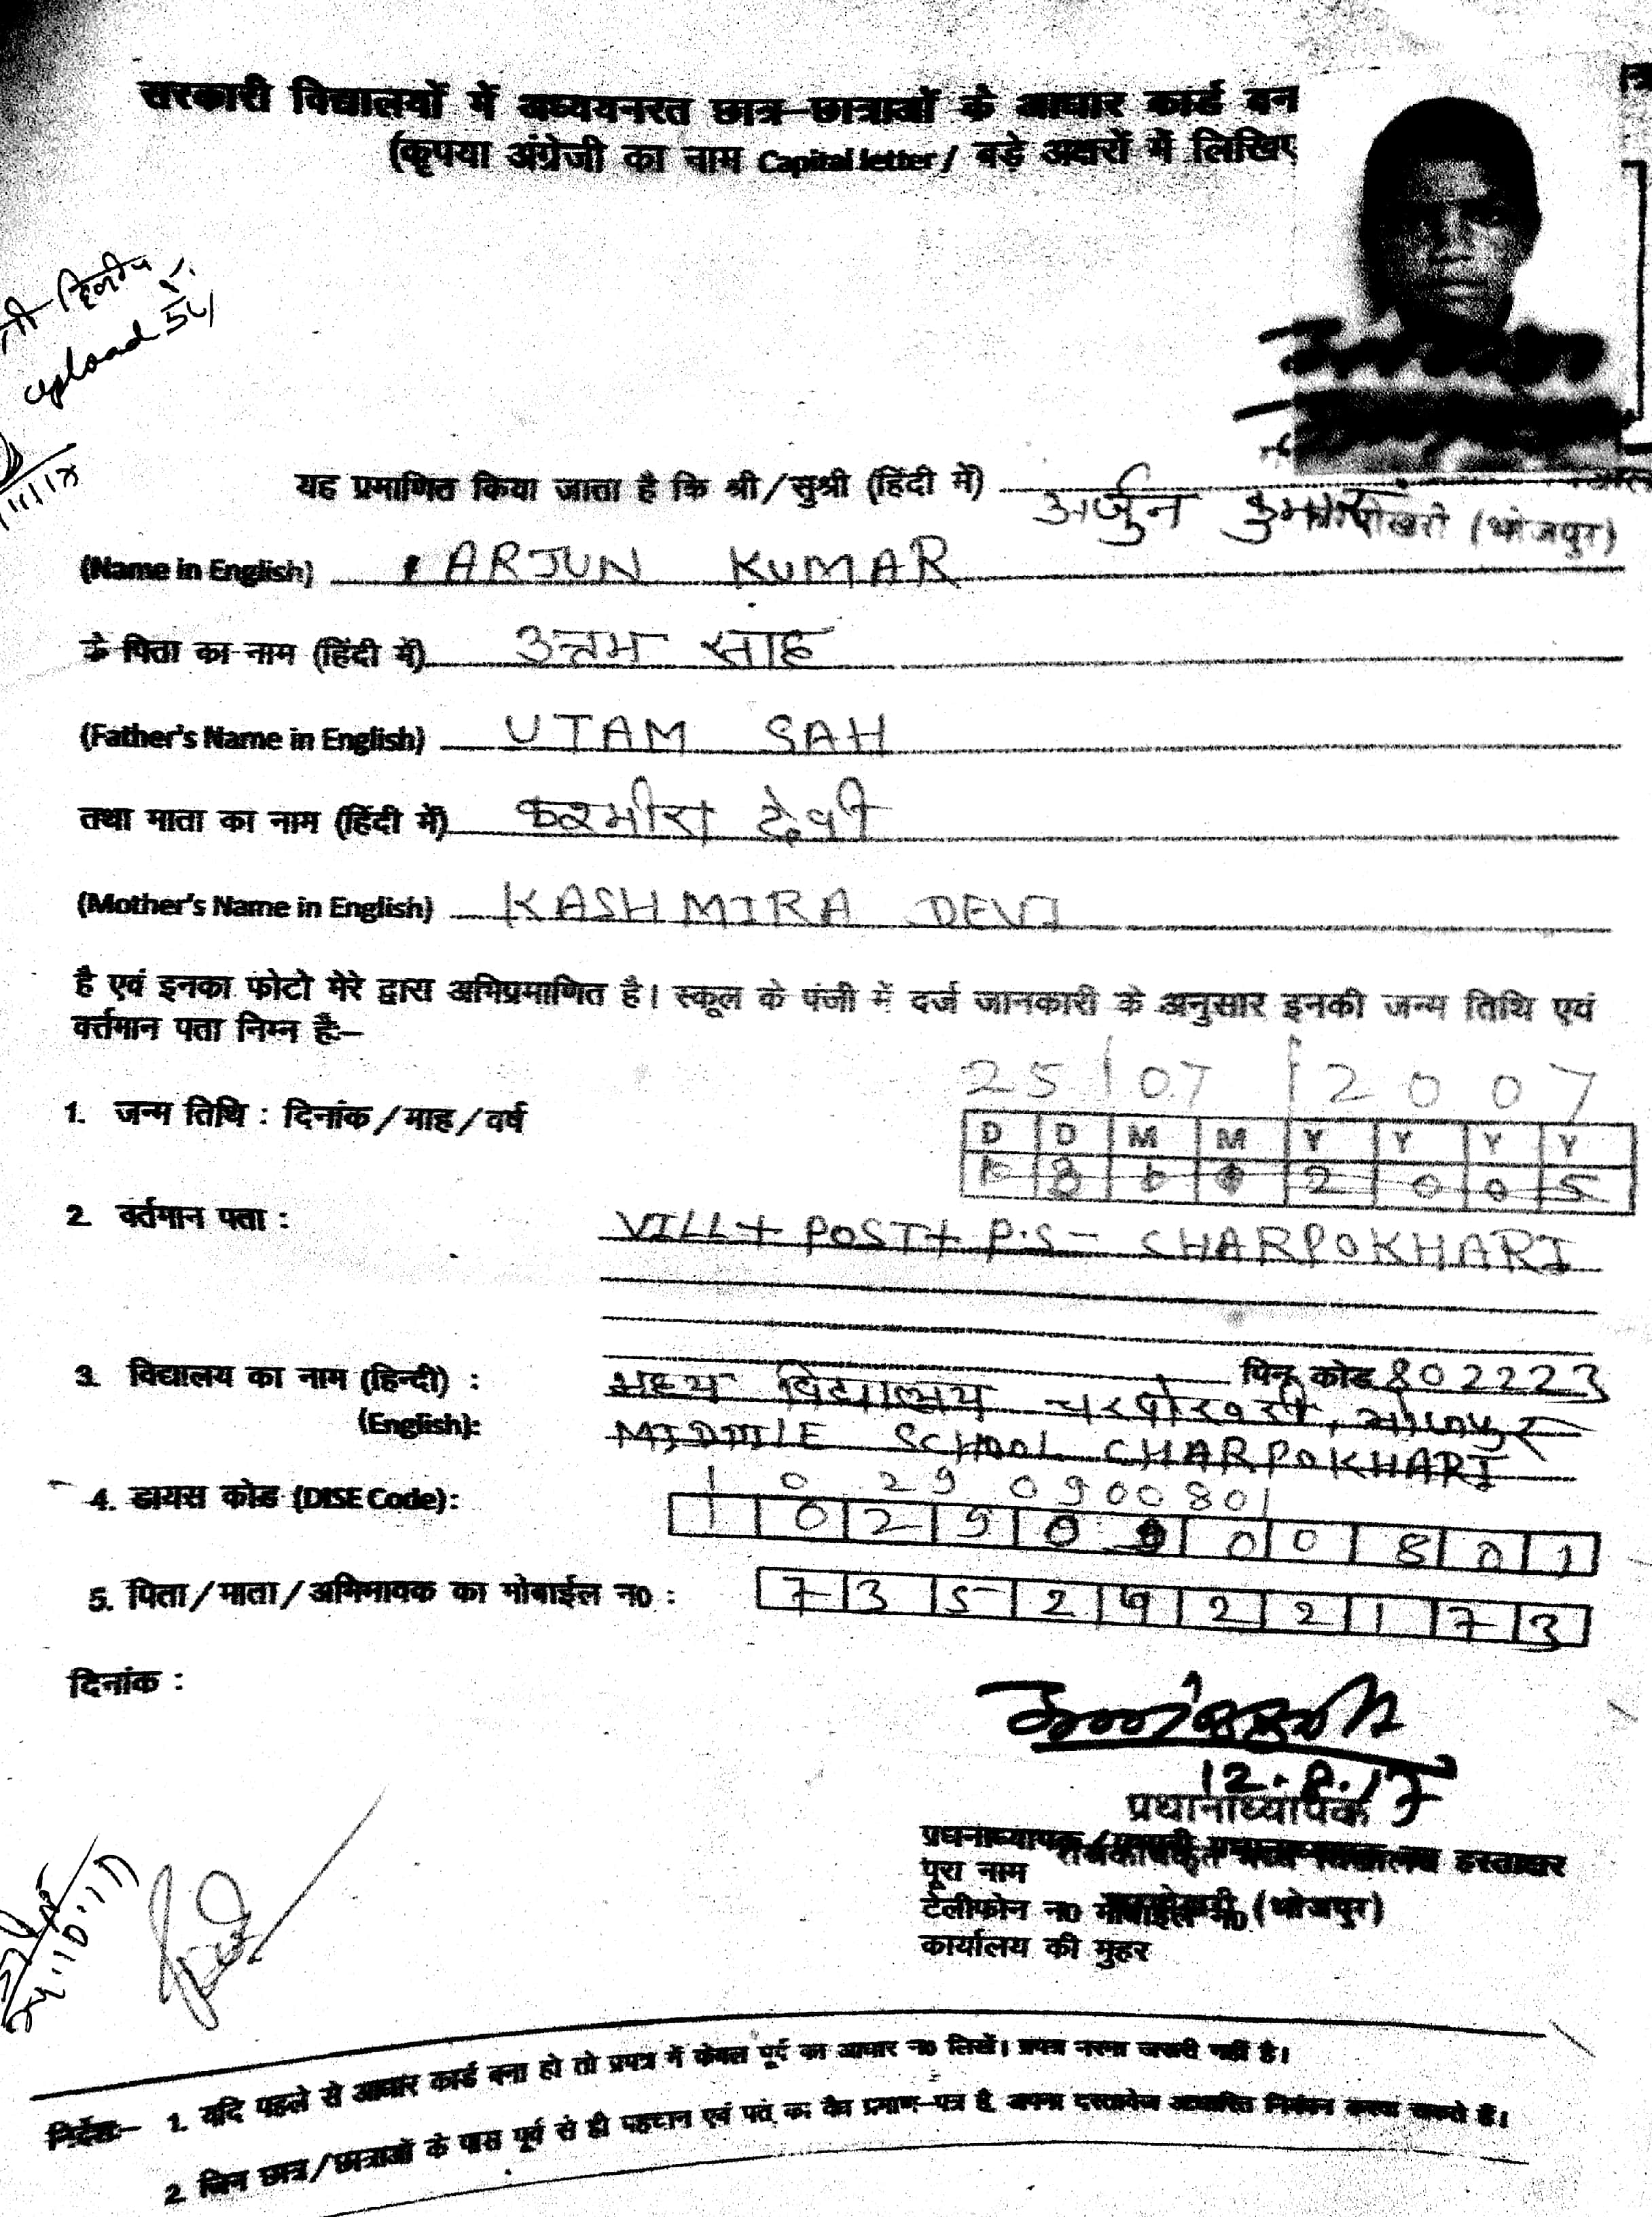 सरकारी विद्यालयों में अध्ययनरत छात्र-छात्राओं के आधार कार्ड बन
(कृपया अंग्रेजी का नाम Capital letter / बड़े अक्षरों में लिखिए
upload
यह प्रमाणित किया जाता है कि श्री/सुश्री (हिंदी में) अर्जुन कुमार
(भोजपुर)
(Name in English) ARJUN KUMAR
के पिता का नाम (हिंदी में) उत्तम साह
(Father's Name in English) UTAM SAH
तथा माता का नाम (हिंदी में) कश्मीरा देवी
(Mother's Name in English) KASHMIRA DEVI
है एवं इनका फोटो मेरे द्वारा अभिप्रमाणित है। स्कूल के पंजी में दर्ज जानकारी के अनुसार इनकी जन्म तिथि एवं
वर्त्तमान पता निम्न है:-
25/07/2007
1. जन्म तिथि : दिनांक/माह/वर्ष D D M M Y Y Y Y
2005
2. वर्तमान पता : VILL + POST + P.S - CHARPOKHARI
पिन कोड 802223
3. विद्यालय का नाम (हिन्दी) : मध्य विद्यालय चरपोखरी, भोजपुर
(English): MIDDLE SCHOOL CHARPOKHARI
10290900801
4. डायस कोड (DISE Code): 10290900801
5. पिता/माता/अभिभावक का मोबाईल न0 : 7352922173
दिनांक :
12.8.17
प्रधानाध्यापक
प्रधनाध्यापक / हस्ताक्षर
पूरा नाम
टेलीफोन न0 मोबाईल न0 (भोजपुर)
कार्यालय की मुहर
निर्देश:- 1. यदि पहले से आधार कार्ड बना हो तो प्रपत्र में केवल पूर्व का आधार न0 लिखें। प्रपत्र भरना जरूरी नहीं है।
2. जिन छात्र/छात्राओं के पास पूर्व से ही पहचान एवं पते का वैध प्रमाण-पत्र है, अपना दस्तावेज आधारित निबंधन करवा सकते हैं।